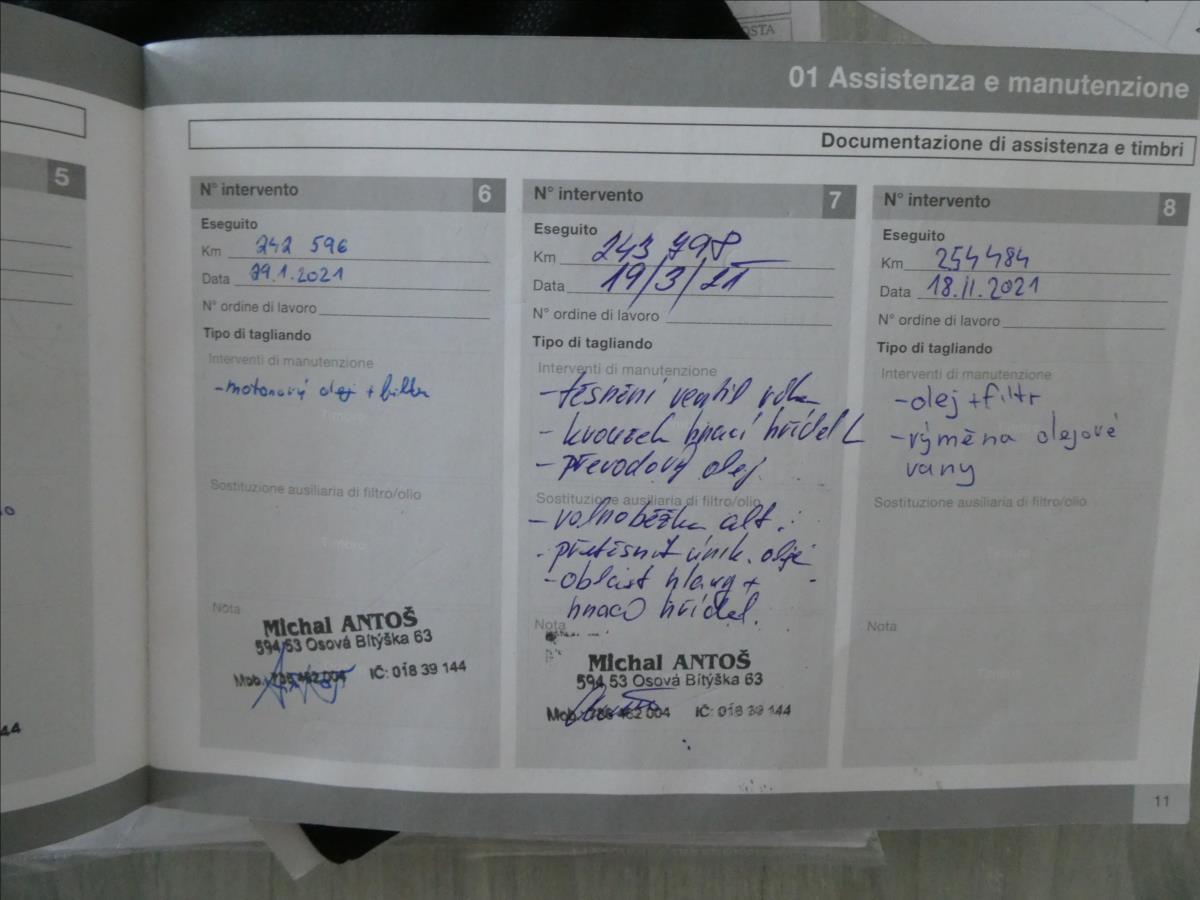 OSTA
01 Assistenza e manutenzione
Documentazione di assistenza e timbri
5
44
N° intervento 6
Eseguito
Km 242 596
Data 29.1.2021
N° ordine di lavoro
Tipo di tagliando
Interventi di manutenzione
-motorový olej + filtr
Timbro
Sostituzione ausiliaria di filtro/olio
Timbro
Nota
Michal ANTOŠ
594 53 Osová Bítýška 63
Mob.: 736 462 004 IČ: 018 39 144
N° intervento 7
Eseguito
Km 243 798
Data 19/3/21
N° ordine di lavoro
Tipo di tagliando
Interventi di manutenzione
-těsnění ventil víka
- kroužek hnací hřídel L
- převodový olej
Sostituzione ausiliaria di filtro/olio
- volnoběžka alt.
- přetěsnit únik. oleje
- oblast hlavy +
hnací hřídel.
Nota
Michal ANTOŠ
594 53 Osová Bítýška 63
Mob.: 736 462 004 IČ: 018 39 144
N° intervento 8
Eseguito
Km 254 484
Data 18.11.2021
N° ordine di lavoro
Tipo di tagliando
Interventi di manutenzione
-olej + filtr
-výměna olejové
vany
Sostituzione ausiliaria di filtro/olio
Timbro
Nota
Timbro
11